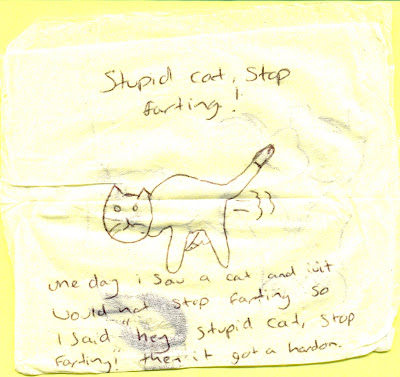 Stupid cat, stop
farting!
one day i saw a cat and it
would not stop farting so
I said "hey stupid cat, stop
farting!" then it got a hardon.